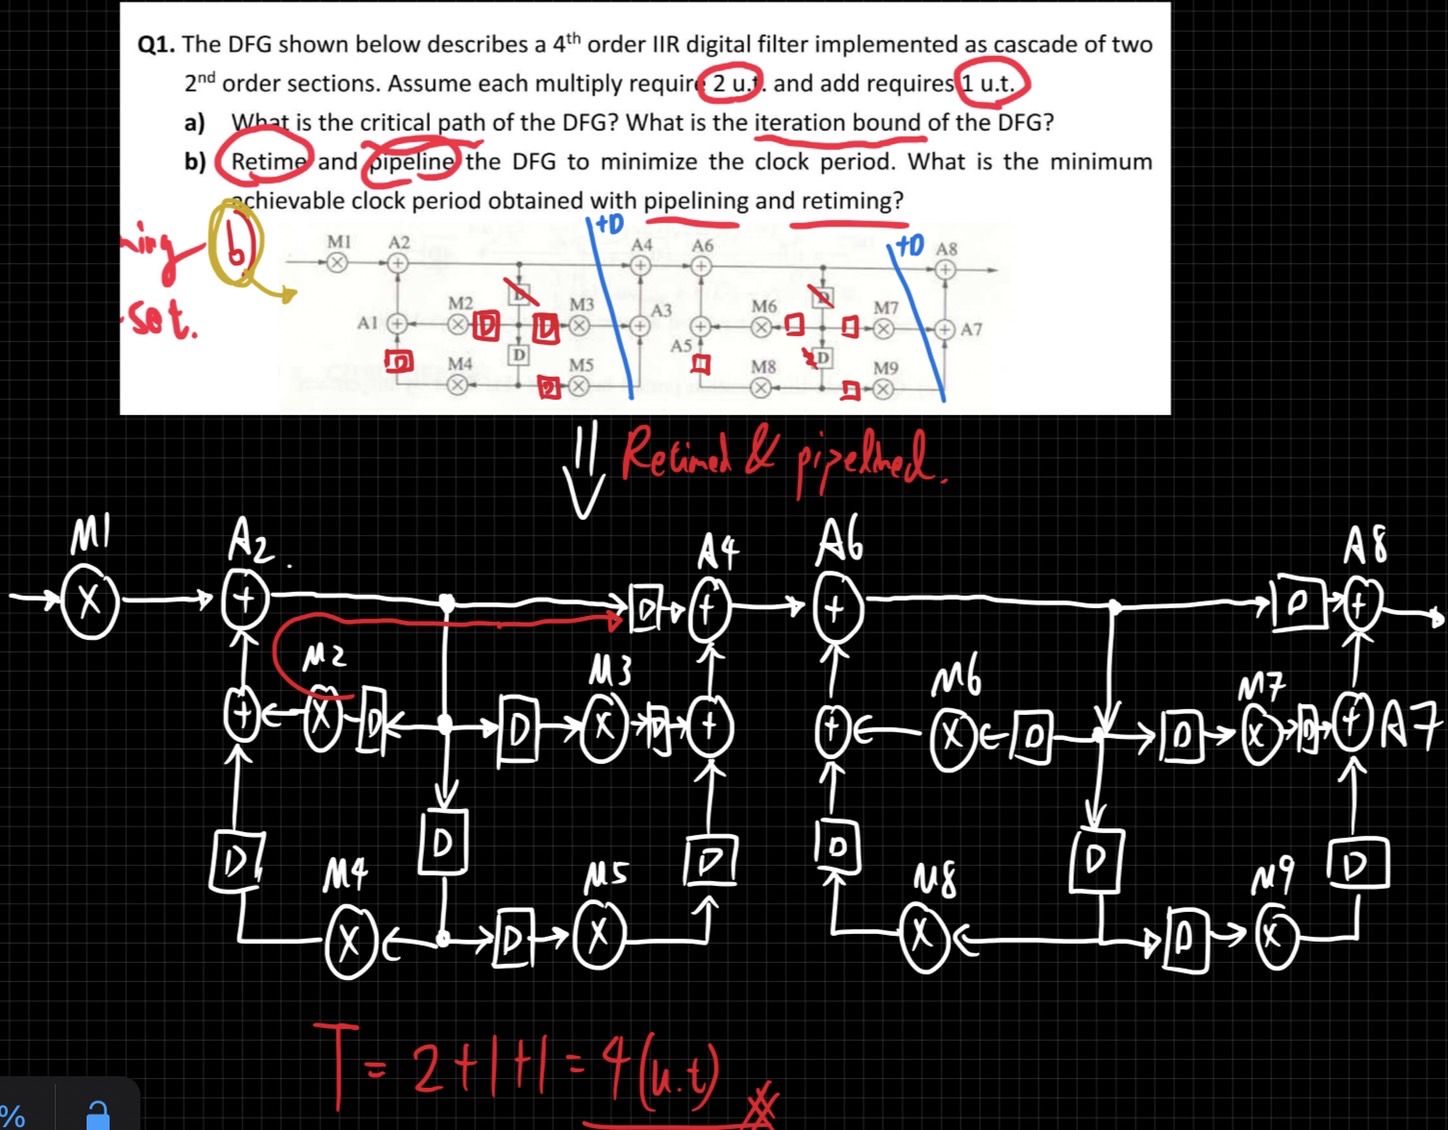 Q1. The DFG shown below describes a 4th order IIR digital filter implemented as cascade of two
2nd order sections. Assume each multiply require 2 u.t. and add requires 1 u.t.
a) What is the critical path of the DFG? What is the iteration bound of the DFG?
b) Retime and pipeline the DFG to minimize the clock period. What is the minimum
achievable clock period obtained with pipelining and retiming?
b
+D
+D
M1 A2 A4 A6 A8
D D
M2 M3 A3 M6 M7
A1 D D A7
D A5
D D
M4 M5 M8 M9
D
Retimed & pipelined.
M1 A2. A4 A6 A8
D D
M2 M3 M6 M7
D D D D D D A7
D D D D D D
M4 M5 M8 M9
D D
T = 2+1+1 = 4 (u.t)
%